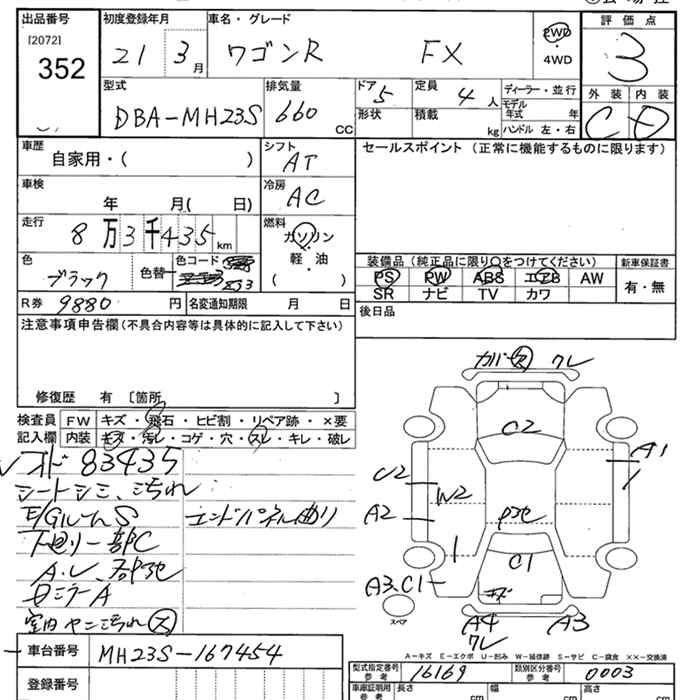 出品番号 初度登録年月 車名・グレード 評価点
[2072]
352
21 3月 ワゴンR FX 2WD・4WD 3
型式 排気量 ドア 定員 ディーラー・並行 外装 内装
DBA-MH23S 660cc 5 4人 モデル年式 年 C D
形状 積載 kg ハンドル 左・右
車歴 シフト セールスポイント(正常に機能するものに限ります)
自家用・( ) AT
車検 冷房
年 月( 日) AC
走行 燃料
8万3千435km ガソリン
軽・油
( )
色 色替 色コード 装備品(純正品に限り○をつけてください) 新車保証書
ブラック PS PW ABS エアB AW 有・無
SR ナビ TV カワ
R券 9880円 名変通知期限 月 日 後日品
注意事項申告欄(不具合内容等は具体的に記入して下さい)
修復歴 有 [箇所 ]
検査員 FW キズ・飛石・ヒビ割・リペア跡・×要
記入欄 内装 キズ・汚レ・コゲ・穴・スレ・キレ・破レ
メーター 83435
シートシミ、汚れ
E/GルームS エンドパネル曲り
下廻り一部C
A・U、
ロミラーA
室内ヤニ汚れ ス
車台番号 MH23S-167454
登録番号
カバー ス ワレ
C2
A1
U2
W2
A2
C1
A3、C1
キズ
スペア
A4
ワレ
A3
A-キズ E-エクボ U-凹み W-補修跡 S-サビ C-腐食 ××-交換済
型式指定番号 参考 16169 類別区分番号 参考 0003
車庫証明用 参考 長さ cm 幅 cm 高さ cm